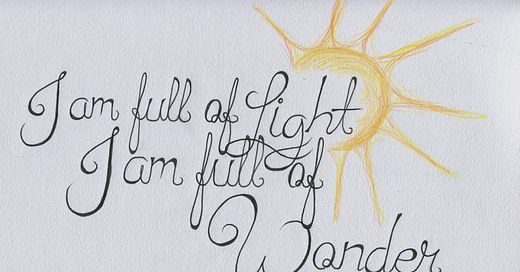 I am full of Light
I am full of
Wonder